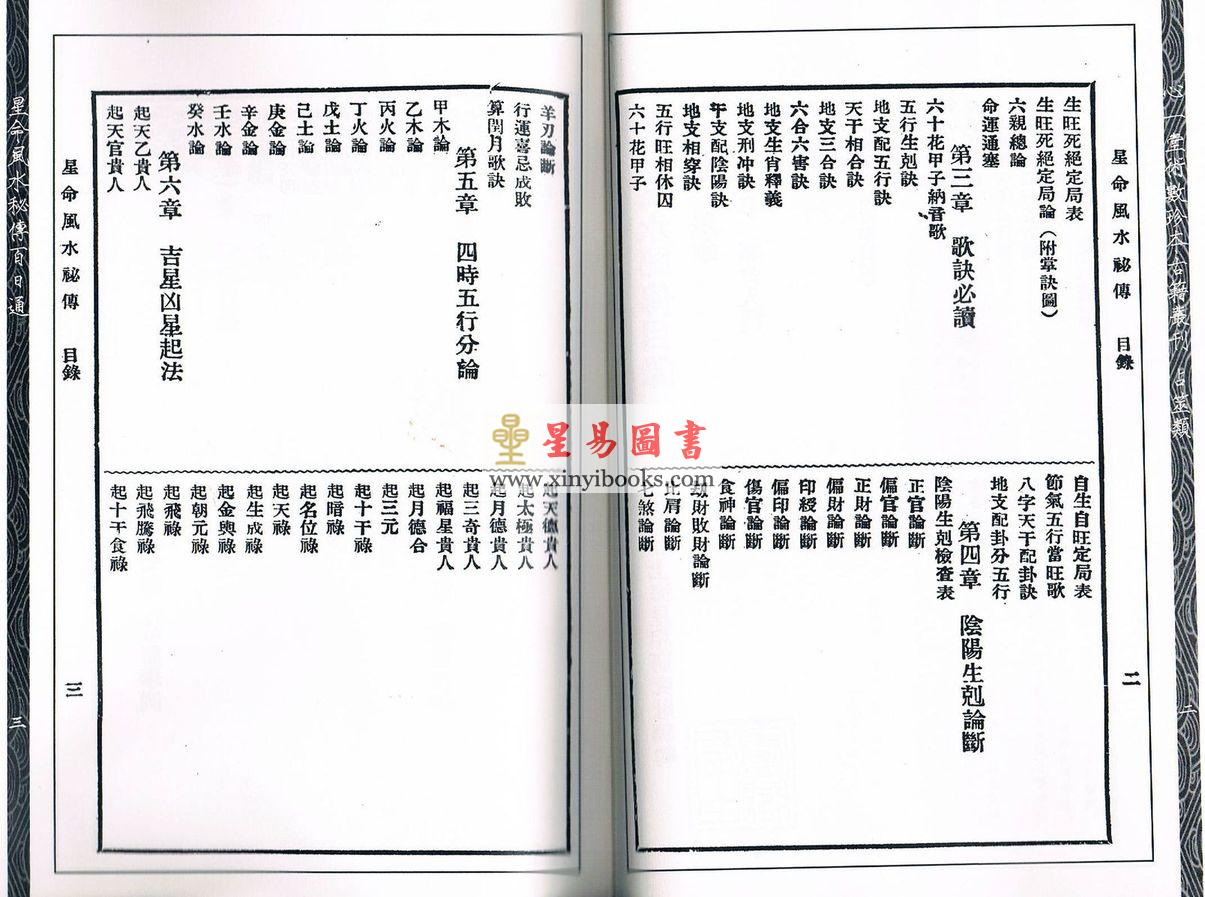 心一堂術數珍本古籍叢刊 占筮類
二
星命風水祕傳 目錄
二
生旺死絕定局表
生旺死絕定局論(附掌訣圖)
六親總論
命運通塞
第三章 歌訣必讀
六十花甲子納音歌
五行生剋訣
地支配五行訣
天干相合訣
地支三合訣
六合六害訣
地支生肖釋義
地支刑冲訣
干支配陰陽訣
地支相穿訣
五行旺相休囚
六十花甲子
自生自旺定局表
節氣五行當旺歌
八字天干配卦訣
地支配卦分五行
第四章 陰陽生剋論斷
陰陽生剋檢查表
正官論斷
偏官論斷
正財論斷
偏財論斷
印綬論斷
偏印論斷
傷官論斷
食神論斷
劫財敗財論斷
比肩論斷
七煞論斷
羊刃論斷
行運喜忌成敗
算閏月歌訣
第五章 四時五行分論
甲木論
乙木論
丙火論
丁火論
戊土論
己土論
庚金論
辛金論
壬水論
癸水論
第六章 吉星凶星起法
起天乙貴人
起天官貴人
起天德貴人
起太極貴人
起月德貴人
起三奇貴人
起福星貴人
起月德合
起三元
起十干祿
起暗祿
起名位祿
起天祿
起生成祿
起金輿祿
起朝元祿
起飛祿
起飛騰祿
起十干食祿
星命風水祕傳 目錄
三
星命風水秘傳百日通
三
星易圖書
www.xinyibooks.com